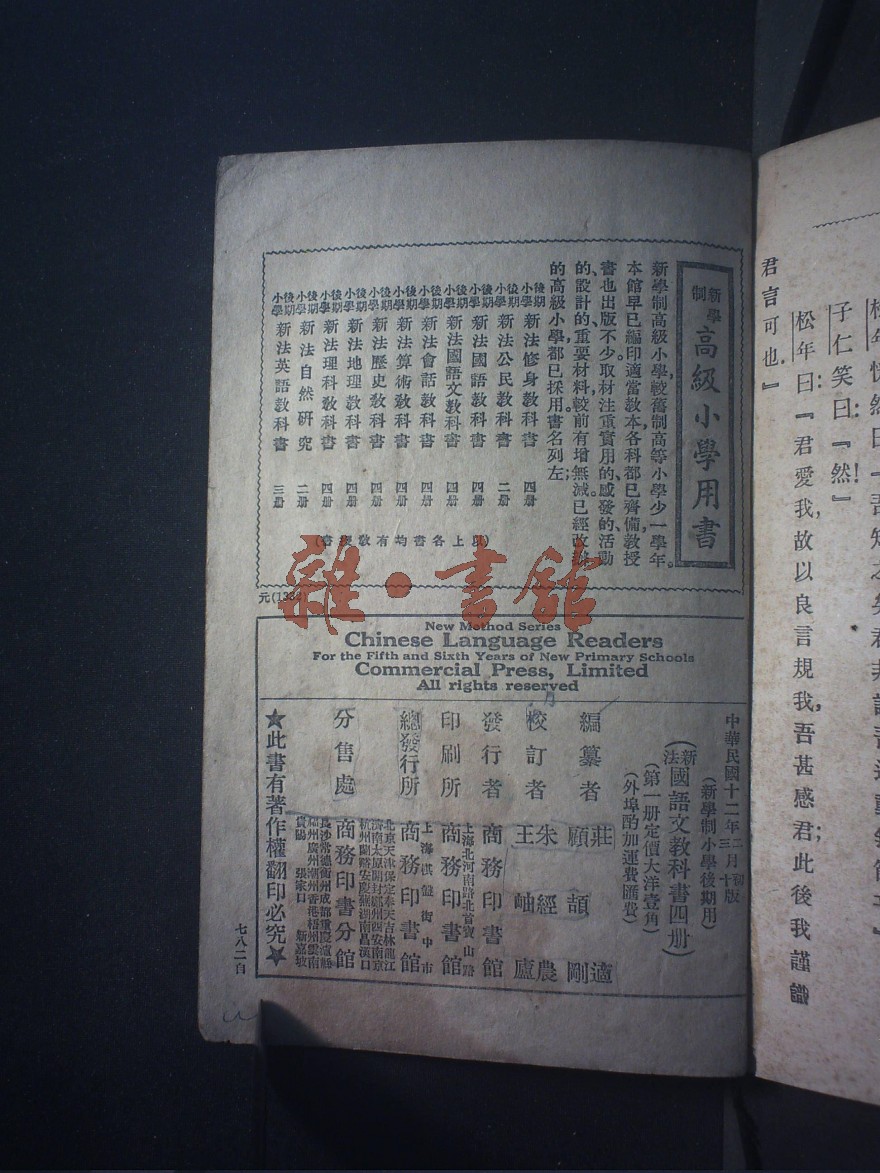 君言可也』
子仁笑曰：『然！』
松年曰：『君愛我，故以良言規我，吾甚感君；此後我謹識
新學制
高級小學用書
新學制高級小學，較舊制高等小學少一學年。
本館早已編印適當教本，各科都已齊備，教授
書也出版不少。取材注重實用的、感發的、活動
的、設計的，重要材料，較前有增無減。已經改辦
的高級小學，都已採用。書名列左：
後期小學 新法修身教科書 四册
後期小學 新法公民教科書 二册
後期小學 新法國語教科書 四册
後期小學 新法國語文教科書 四册
後期小學 新法會話教科書 四册
後期小學 新法算術教科書 四册
後期小學 新法歷史教科書 四册
後期小學 新法地理教科書 四册
後期小學 新法理科教科書 四册
後期小學 新法自然研究 二册
後期小學 新法英語教科書 三册
(以上各書均有教授書)
雜·書館
New Method Series
Chinese Language Readers
For the Fifth and Sixth Years of New Primary Schools
Commercial Press, Limited
All rights reserved
(新學制小學後期用)
(新法國語文教科書四册)
(第一册定價大洋壹角)
(外埠酌加運費匯費)
編纂者 莊適 顧頡剛
校訂者 朱經農 王岫廬
發行者 商務印書館
印刷所 上海北河南路北首寶山路 商務印書館
總發行所 上海棋盤街中市 商務印書館
分售處 商務印書分館
北京天津保定奉天吉林龍江
濟南太原開封鄭州西安南京
杭州蘭谿安慶蕪湖南昌漢口
長沙常德衡州成都重慶瀘縣
福州廣州潮州香港梧州雲南
貴陽 張家口 新嘉坡
★此書有著作權翻印必究★
七八二自